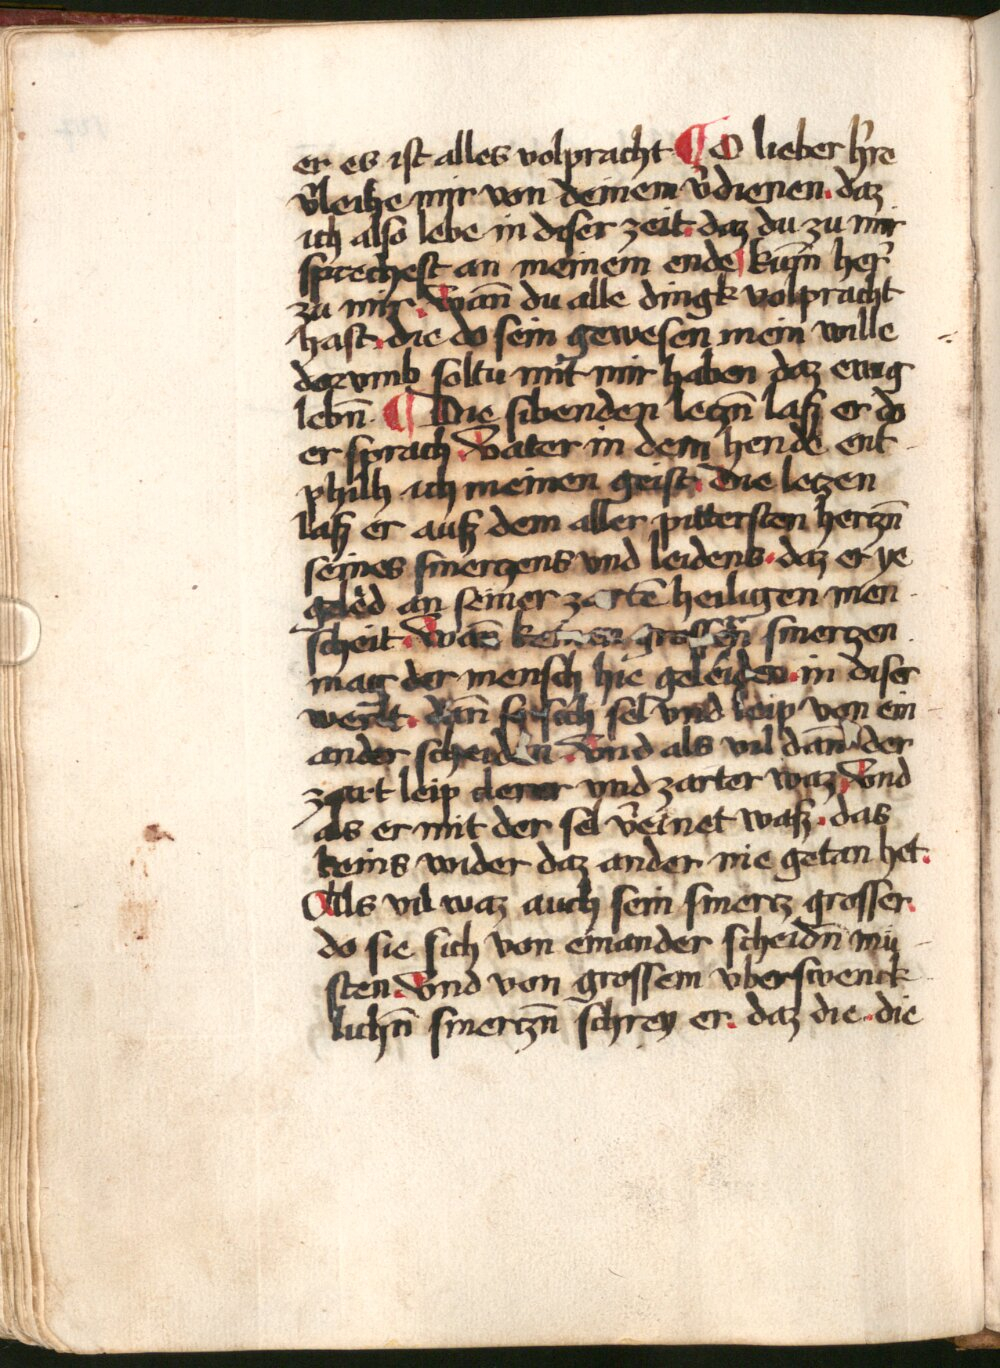 er es ist alles volpracht ¶ O lieber h̄re
v̄leihe mir von deinem v̄dienen. daz
ich also lebe in diser zeit. daz du zu mir
sprechest an meinem ende kūm her̄
zu mir. wan̄ du alle dingk volpracht
hast. die do sein gewesen mein wille
dorvmb soltu mit mir haben daz ewig
lebn̄. ¶ Die sibenden leczn̄ laß er do
er sprach. Vater in dein hende ent
philh ich meinen geist. die leczen
laß er auß dem aller pittersten herczn̄
seines smerczens vnd leidens. daz er ye
geled an seiner zarten̄ heiligen men
scheit. wan̄ keinen grossern smerczen
mag der mensch hie geleiden. in diser
werlt. dan̄ so sich sel vnd leip von ein
ander scheiden. Vnd als vil dan̄ der
zart leip clerer vnd zarter waz. Vnd
als er mit der sel v̄einet waß. das
keins wider daz ander nie getan het.
Als vil waz auch sein smercz grosser.
do sie sich von einander scheidn̄ mü
sten. Vnd von grossem vberswenck
lichn̄ smerczn̄ schrey er. daz die. die